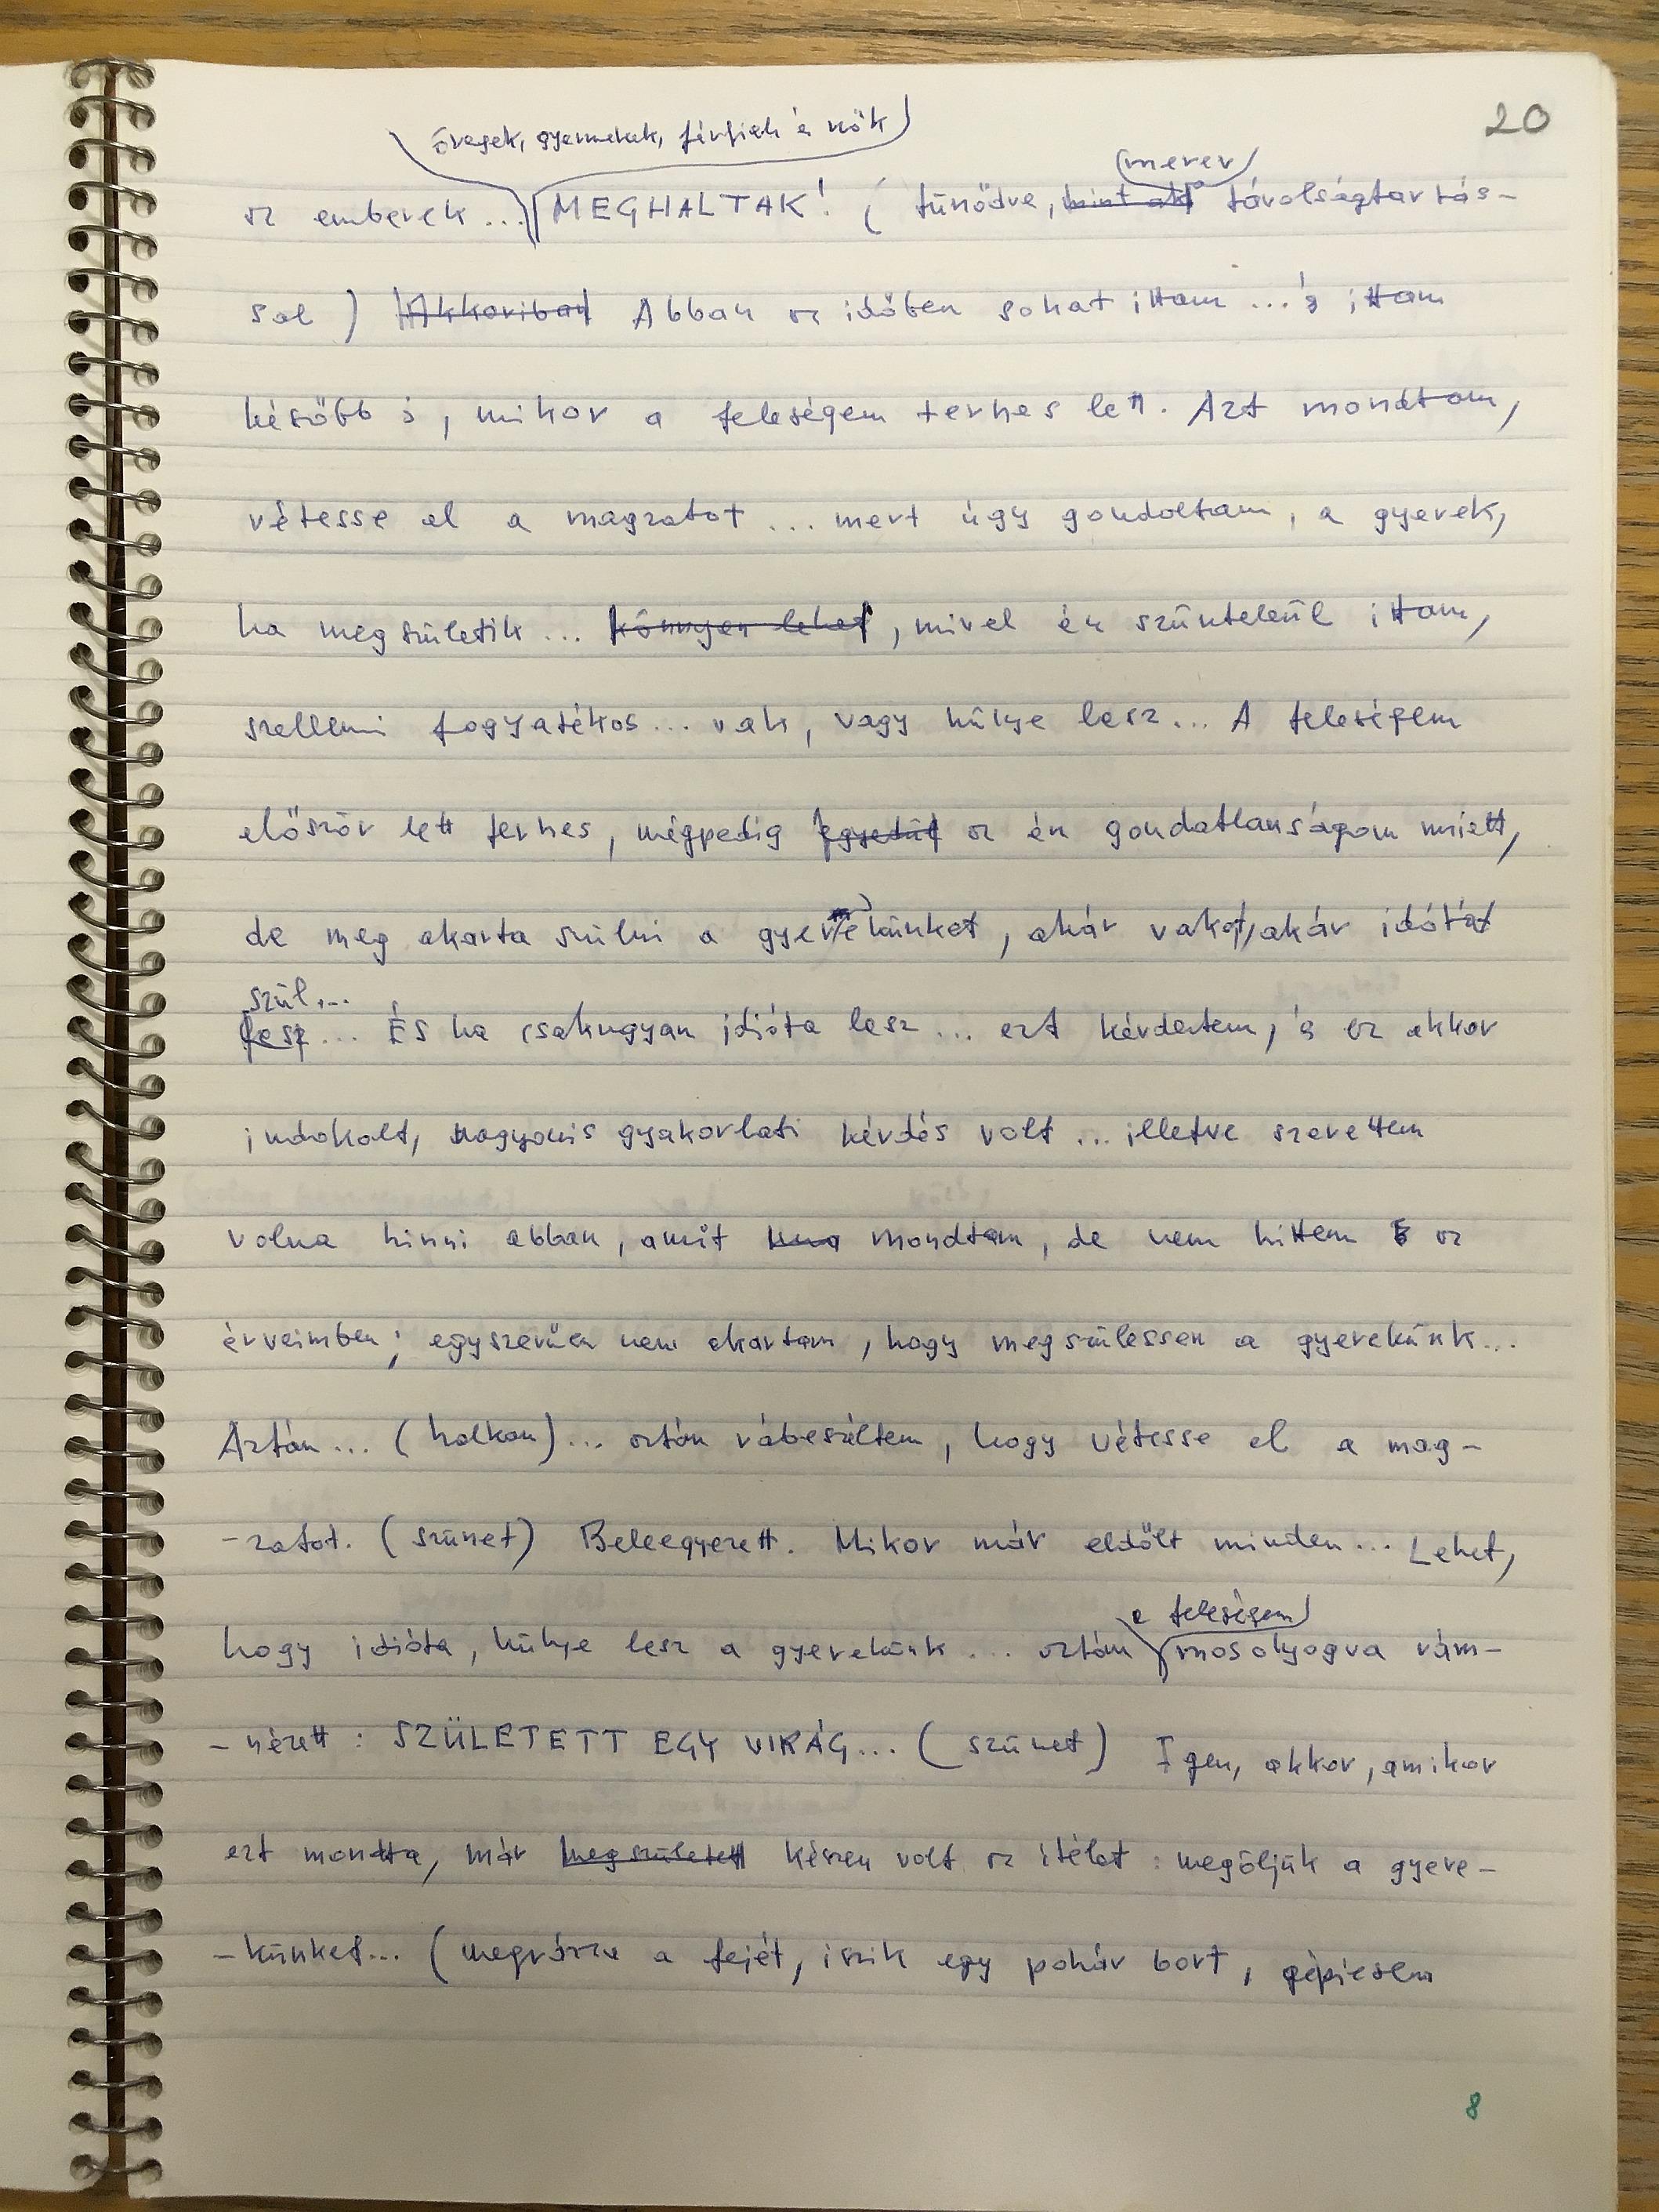 20
öregek, gyermekek, férfiak és nők
merev
az emberek... MEGHALTAK! (tünődve, mint aki távolságtartás-
sal) Akkoriban Abban az időben sokat ittam... és ittam
később is, mikor a feleségem terhes lett. Azt mondtam,
vétesse el a magzatot... mert úgy gondoltam, a gyerek,
ha megszületik... könnyen lehet, mivel én szüntelenül ittam,
szellemi fogyatékos... vak, vagy hülye lesz... A feleségem
először lett terhes, mégpedig egyedül az én gondatlanságom miatt,
de meg akarta szülni a gyerekünket, akár vakot, akár idiótát
szül...
lesz... És ha csakugyan idióta lesz... ezt kérdeztem, és ez akkor
indokolt, nagyonis gyakorlati kérdés volt... illetve szerettem
volna hinni abban, amit mondtam, de nem hittem az
érveimben; egyszerűen nem akartam, hogy megszülessen a gyerekünk...
Aztán... (halkan)... aztán rábeszéltem, hogy vétesse el a mag-
-zatot. (szünet) Beleegyezett. Mikor már eldőlt minden... Lehet,
a feleségem
hogy idióta, hülye lesz a gyerekünk... aztán mosolyogva rám-
-nézett: SZÜLETETT EGY VIRÁG... (szünet) Igen, akkor, amikor
ezt mondta, már megszületett készen volt az ítélet: megöljük a gyere-
-künket... (megrázza a fejét, iszik egy pohár bort, gépiesen
8